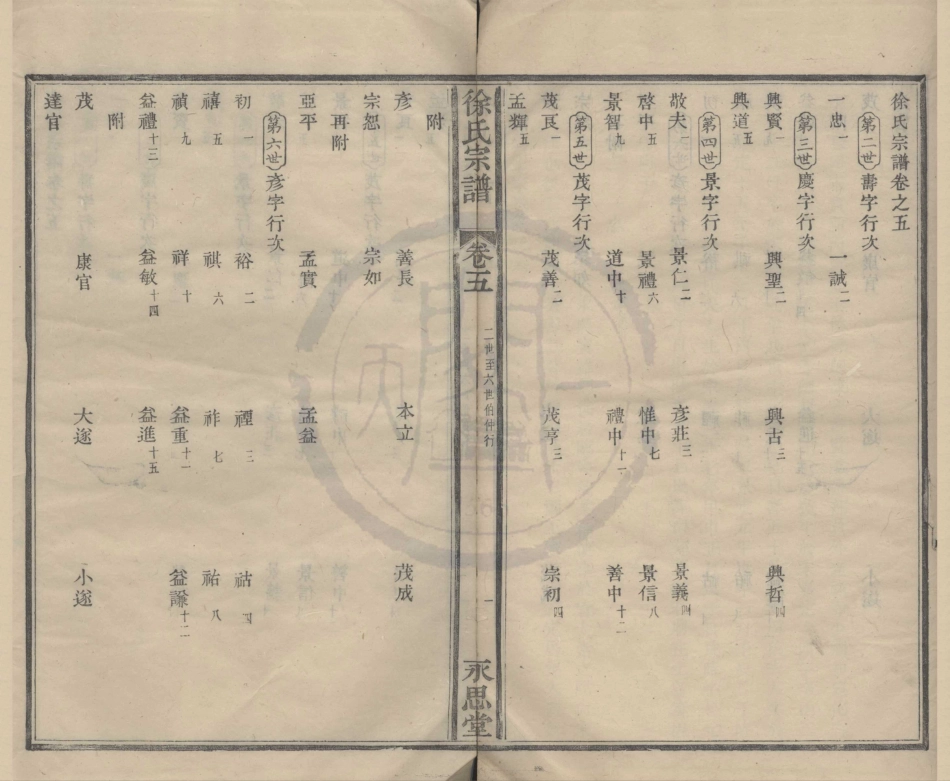 徐氏宗譜卷之五
第二世 壽字行次
一忠一 一誠二
第三世 慶字行次
興賢一 興聖二 興古三 興哲四
興道五
第四世 景字行次
敬夫一 景仁二 彥莊三 景義四
啓中五 景禮六 惟中七 景信八
景智九 道中十 禮中十一 善中十二
第五世 茂字行次
茂艮一 茂善二 茂亨三 宗初四
孟輝五
徐氏宗譜 卷五 二世至六世伯仲行 一 永思堂
附
彥 善長 本立 茂成
宗恕 宗如
再附
亞平 孟實 孟益
第六世 彥字行次
初一 裕二 禋三 祜四
禧五 祺六 祚七 祐八
禎九 祥十 益重十一 益謙十二
益禮十三 益敏十四 益進十五
附
茂官 康官 大遂 小遂
達官